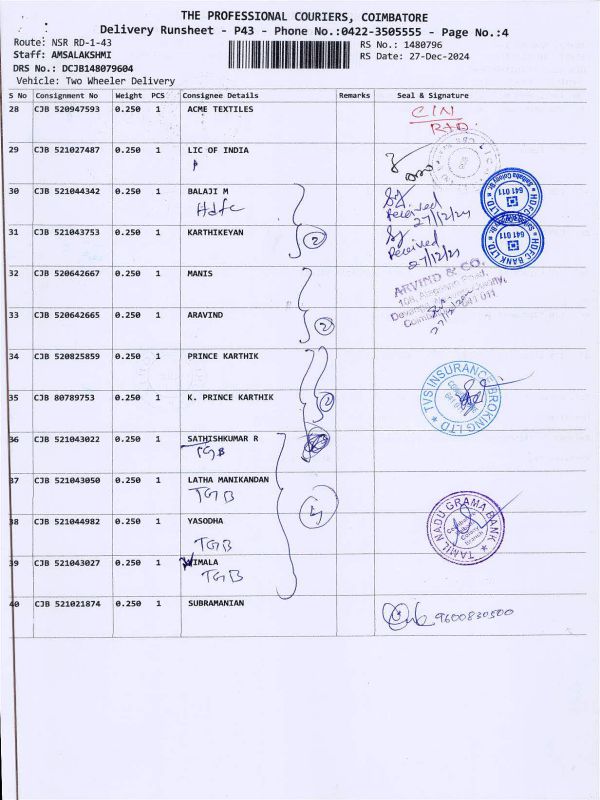 THE PROFESSIONAL COURIERS, COIMBATORE
Delivery Runsheet - P43 - Phone No.:0422-3505555 - Page No.:4
Route: NSR RD-1-43
RS No.: 1480796
Staff: AMSALAKSHMI
RS Date: 27-Dec-2024
DRS No.: DCJB148079604
Vehicle: Two Wheeler Delivery
S No Consignment No Weight PCS Consignee Details Remarks Seal & Signature
28 CJB 520947593 0.250 1 ACME TEXTILES
CIN
RTD
29 CJB 521027487 0.250 1 LIC OF INDIA
30 CJB 521044342 0.250 1 BALAJI M
Hdfc
Received
27/12/24
HDFC BANK LTD
641 011
31 CJB 521043753 0.250 1 KARTHIKEYAN
2
Received
27/12/24
HDFC BANK LTD
641 011
32 CJB 520642667 0.250 1 MANIS
ARVIND & CO.
641 011
33 CJB 520642665 0.250 1 ARAVIND
2
34 CJB 520825859 0.250 1 PRINCE KARTHIK
TVS INSURANCE BROKING LTD
35 CJB 80789753 0.250 1 K. PRINCE KARTHIK
2
36 CJB 521043022 0.250 1 SATHISHKUMAR R
TGB
37 CJB 521043050 0.250 1 LATHA MANIKANDAN
TGB
4
38 CJB 521044982 0.250 1 YASODHA
TGB
TAMIL NADU GRAMA BANK
39 CJB 521043027 0.250 1 VIMALA
TGB
40 CJB 521021874 0.250 1 SUBRAMANIAN
9600830500